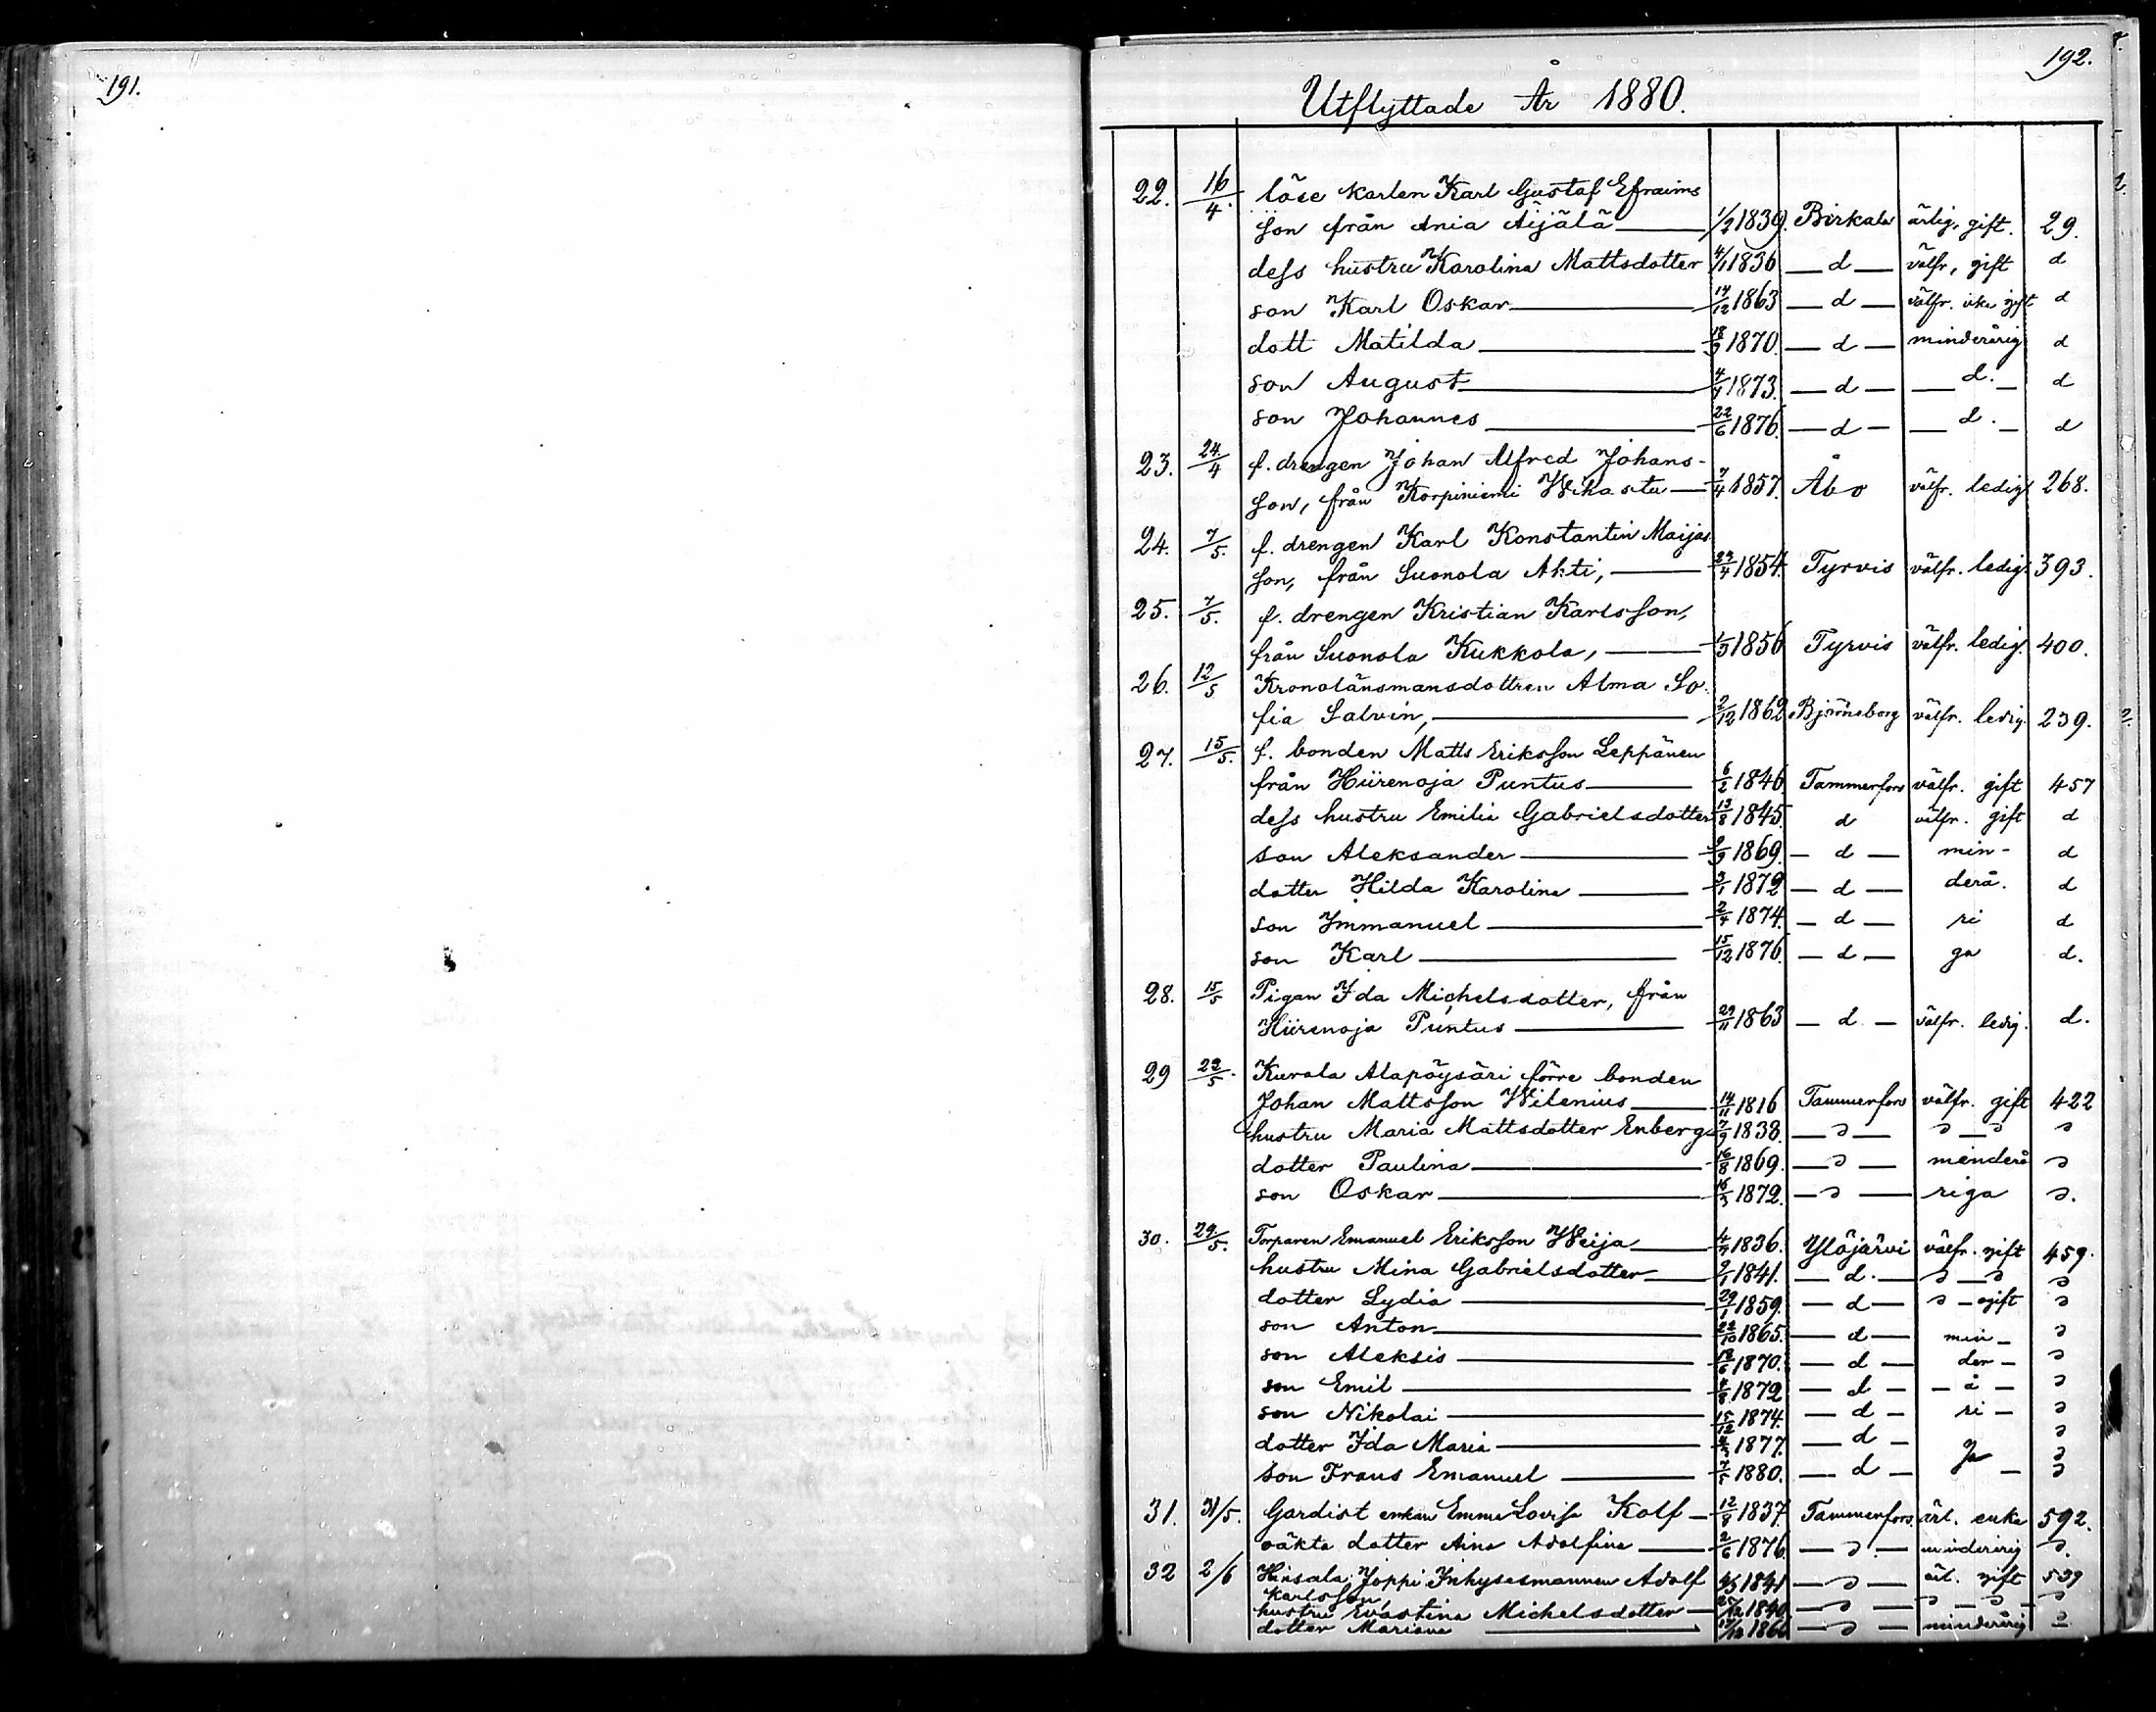 191.
192.
Utflyttade År 1880.
22. 16/4. löse karlen Karl Gustaf Efraims
son från Ania Äijälä 1/2 1839. Birkala ärlig, gift. 29.
dess hustru Karolina Mattsdotter 4/1 1836 — d — välfr, gift d
son Karl Oskar 14/12 1863 — d — välfr. icke gift d
dott Matilda 18/9 1870. — d — minderårig d
son August 4/4 1873. — d — — d. — d
son Johannes 22/6 1876. — d — — d. — d
23. 24./4 f. drengen Johan Alfred Johans-
son, från Korpiniemi Wihastu 7/4 1857. Åbo välfr. ledig 268.
24. 7/5. f. drengen Karl Konstantin Maijas
son, från Suonola Ahti, 23/4 1854. Tyrvis välfr. ledig. 393.
25. 7/5. f. drengen Kristian Karlsson,
från Suonola Kukkola, 1/3 1856 Tyrvis välfr. ledig. 400.
26. 12/5 Kronolänsmansdottren Alma So-
fia Salvin, 2/12 1862 Björneborg välfr. ledig. 239.
27. 15/5. f. bonden Matts Eriksson Leppänen
från Hiirenoja Puntus 6/2 1846 Tammerfors välfr. gift 457
dess hustru Emilia Gabrielsdotter 13/8 1845. d välfr. gift d
son Aleksander 9/9 1869. — d — min- d
dotter Hilda Karolina 3/1 1872 — d — derå. d
son Immanuel 2/4 1874. — d — ri d
son Karl 15/12 1876. — d — ga d.
28. 15/5 Pigan Ida Michelsdotter, från
Hiirenoja Puntus 29/11 1863 — d — välfr. ledig. d.
29 22/5. Kurala Alapöysäri förre bonden
Johan Mattsson Wilenius 14/11 1816 Tammerfors välfr. gift 422
hustru Maria Mattsdotter Enberg 7/9 1838. — d — d — d d
dotter Paulina 16/8 1869. — d — minderå d
son Oskar 16/3 1872. — d — riga d.
30. 29/5. Torparen Emanuel Eriksson Weija 4/7 1836. Ylöjärvi välfr. gift 459.
hustru Mina Gabrielsdotter 9/1 1841. — d. — d — d d
dotter Lydia 29/1 1859. — d — d — ogift d
son Anton 22/10 1865. — d — min — d
son Aleksis 18/6 1870. — d — der — d
son Emil 4/8 1872 — d — — å — d
son Nikolai 15/12 1874. — d — ri — d
dotter Ida Maria 1877. — d — ga d
son Frans Emanuel 7/5 1880. — d — — d
31. 31/5. Gardist enkan Emma Lovisa Kolf 12/8 1837. Tammerfors. ärl. enka 592.
oäkta dotter Aina Adolfina 2/6 1876. — d — minderårig d.
32 2/6 Hinsala Joppi Inhysesmannen Adolf 1841 — d — ärl. gift 539
Karlsson,
hustru Evastina Michelsdotter 1840 — d — d — d — d
dotter Mariana 1866 — d — minderårig d